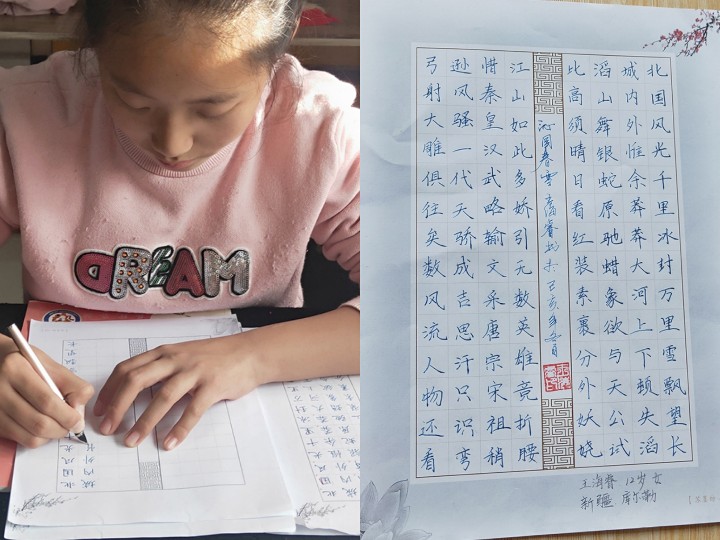 DREAM
北国风光千里冰封万里雪飘望长
城内外惟余莽莽大河上下顿失滔
滔山舞银蛇原驰蜡象欲与天公试
比高须晴日看红装素裹分外妖娆
沁园春雪 己亥年冬月
江山如此多娇引无数英雄竞折腰
惜秦皇汉武略输文采唐宗宋祖稍
逊风骚一代天骄成吉思汗只识弯
弓射大雕俱往矣数风流人物还看
王海睿 12岁 女
新疆 库尔勒